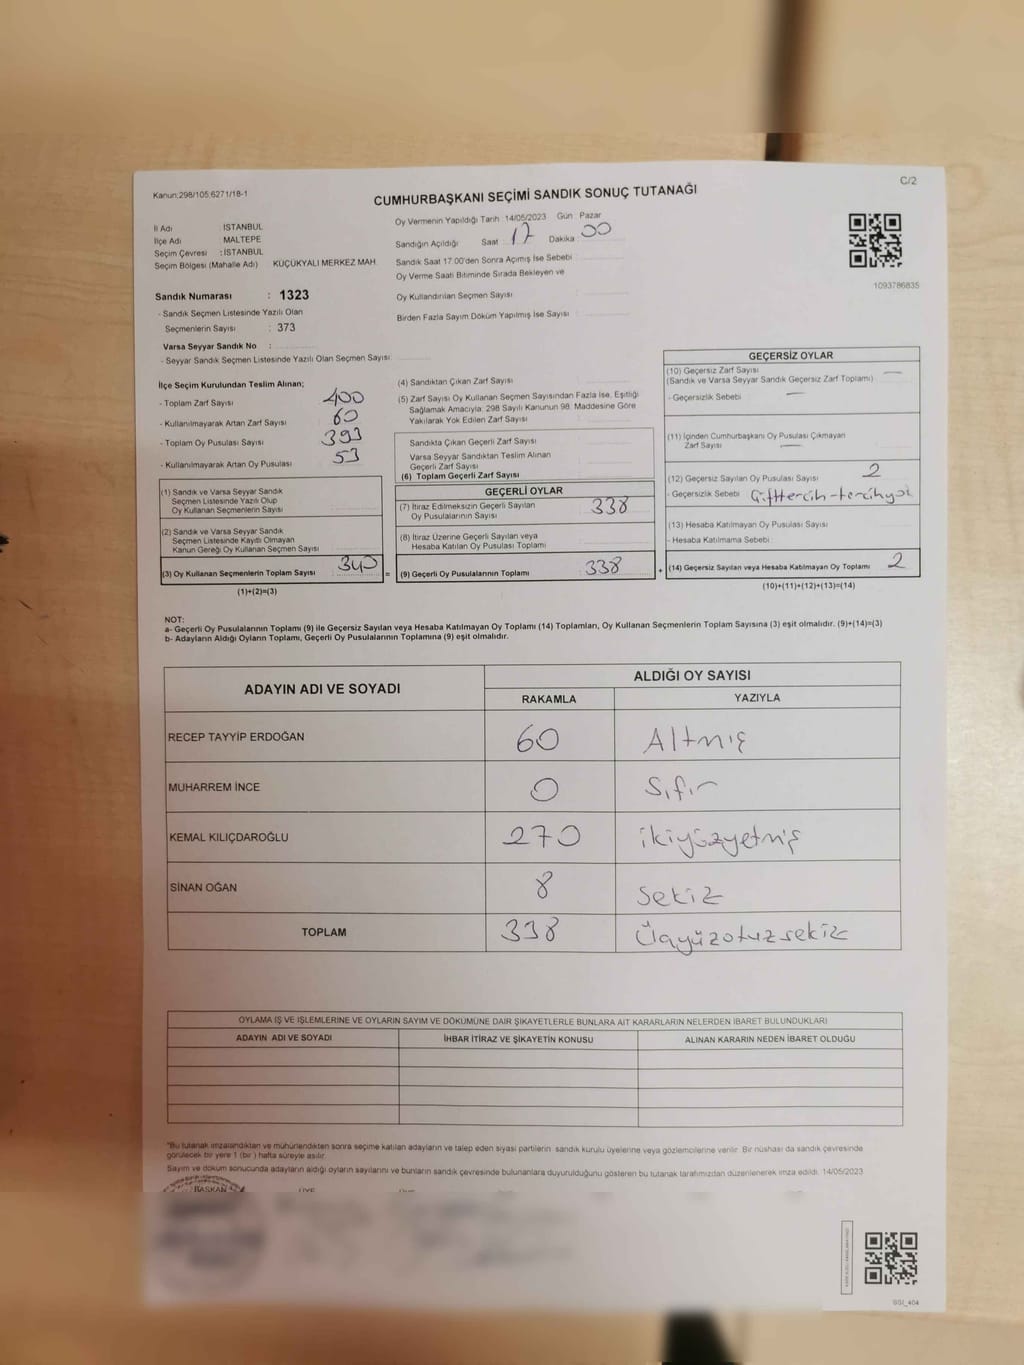 Kanun:298/105,6271/18-1
C/2
CUMHURBAŞKANI SEÇİMİ SANDIK SONUÇ TUTANAĞI
İl Adı : İSTANBUL
İlçe Adı : MALTEPE
Seçim Çevresi : İSTANBUL
Seçim Bölgesi (Mahalle Adı) KÜÇÜKYALI MERKEZ MAH.
Oy Vermenin Yapıldığı Tarih 14/05/2023 Gün Pazar
Sandığın Açıldığı Saat 17 Dakika 00
Sandık Saat 17.00'den Sonra Açımış İse Sebebi
Oy Verme Saati Bitiminde Sırada Bekleyen ve
Oy Kullandırılan Seçmen Sayısı
Birden Fazla Sayım Döküm Yapılmış İse Sayısı
1093786835
Sandık Numarası : 1323
- Sandık Seçmen Listesinde Yazılı Olan
Seçmenlerin Sayısı : 373
Varsa Seyyar Sandık No :
- Seyyar Sandık Seçmen Listesinde Yazılı Olan Seçmen Sayısı:
İlçe Seçim Kurulundan Teslim Alınan;
- Toplam Zarf Sayısı 400
- Kullanılmayarak Artan Zarf Sayısı 60
- Toplam Oy Pusulası Sayısı 393
- Kullanılmayarak Artan Oy Pusulası 53
(1) Sandık ve Varsa Seyyar Sandık
Seçmen Listesinde Yazılı Olup
Oy Kullanan Seçmenlerin Sayısı
(2) Sandık ve Varsa Seyyar Sandık
Seçmen Listesinde Kayıtlı Olmayan
Kanun Gereği Oy Kullanan Seçmen Sayısı
(3) Oy Kullanan Seçmenlerin Toplam Sayısı 340
(1)+(2)=(3)
=
(4) Sandıktan Çıkan Zarf Sayısı
(5) Zarf Sayısı Oy Kullanan Seçmen Sayısından Fazla İse, Eşitliği
Sağlamak Amacıyla; 298 Sayılı Kanunun 98. Maddesine Göre
Yakılarak Yok Edilen Zarf Sayısı
Sandıkta Çıkan Geçerli Zarf Sayısı
Varsa Seyyar Sandıktan Teslim Alınan
Geçerli Zarf Sayısı
(6) Toplam Geçerli Zarf Sayısı
GEÇERLİ OYLAR
(7) İtiraz Edilmeksizin Geçerli Sayılan
Oy Pusulalarının Sayısı 338
(8) İtiraz Üzerine Geçerli Sayılan veya
Hesaba Katılan Oy Pusulası Toplamı
(9) Geçerli Oy Pusulalarının Toplamı 338
+
GEÇERSİZ OYLAR
(10) Geçersiz Zarf Sayısı —
(Sandık ve Varsa Seyyar Sandık Geçersiz Zarf Toplamı)
- Geçersizlik Sebebi —
(11) İçinden Cumhurbaşkanı Oy Pusulası Çıkmayan
Zarf Sayısı —
(12) Geçersiz Sayılan Oy Pusulası Sayısı 2
- Geçersizlik Sebebi Çifttercih-tercihyok
(13) Hesaba Katılmayan Oy Pusulası Sayısı
- Hesaba Katılmama Sebebi
(14) Geçersiz Sayılan veya Hesaba Katılmayan Oy Toplamı 2
(10)+(11)+(12)+(13)=(14)
NOT:
a- Geçerli Oy Pusulalarının Toplamı (9) ile Geçersiz Sayılan veya Hesaba Katılmayan Oy Toplamı (14) Toplamları, Oy Kullanan Seçmenlerin Toplam Sayısına (3) eşit olmalıdır. (9)+(14)=(3)
b- Adayların Aldığı Oyların Toplamı, Geçerli Oy Pusulalarının Toplamına (9) eşit olmalıdır.
ADAYIN ADI VE SOYADI
ALDIĞI OY SAYISI
RAKAMLA YAZIYLA
RECEP TAYYİP ERDOĞAN 60 Altmış
MUHARREM İNCE 0 Sıfır
KEMAL KILIÇDAROĞLU 270 ikiyüzyetmiş
SİNAN OĞAN 8 Sekiz
TOPLAM 338 Üçyüzotuzsekiz
OYLAMA İŞ VE İŞLEMLERİNE VE OYLARIN SAYIM VE DÖKÜMÜNE DAİR ŞİKAYETLERLE BUNLARA AİT KARARLARIN NELERDEN İBARET BULUNDUKLARI
ADAYIN ADI VE SOYADI İHBAR İTİRAZ VE ŞİKAYETİN KONUSU ALINAN KARARIN NEDEN İBARET OLDUĞU
"Bu tutanak imzalandıktan ve mühürlendikten sonra seçime katılan adayların ve talep eden siyasi partilerin sandık kurulu üyelerine veya gözlemcilerine verilir. Bir nüshası da sandık çevresinde
görülecek bir yere 1 (bir ) hafta süreyle asılır.
Sayım ve döküm sonucunda adayların aldığı oyların sayılarını ve bunların sandık çevresinde bulunanlara duyurulduğunu gösteren bu tutanak tarafımızdan düzenlenerek imza edildi. 14/05/2023
BAŞKAN
SSİ_404